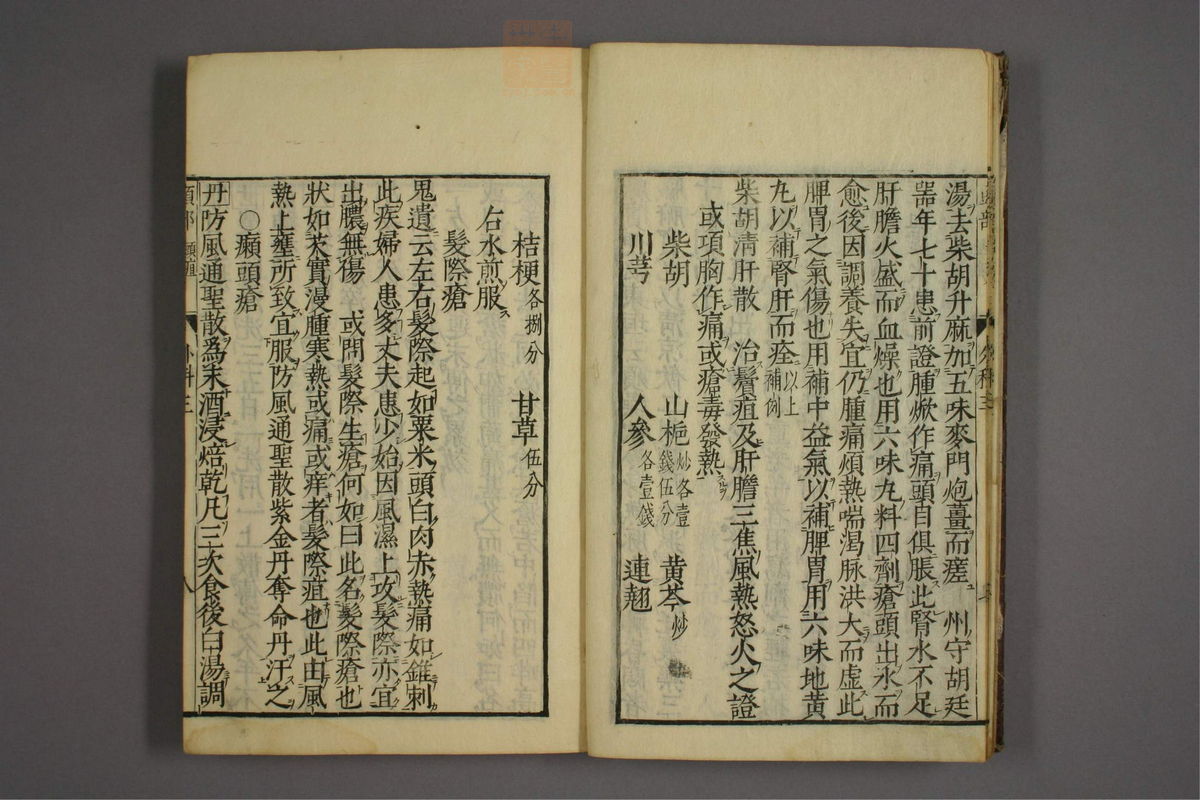 湯去柴胡升麻加五味麥門炮薑而瘥　州守胡廷
噐年七十患前證腫焮作痛頭目俱脹此腎水不足
肝膽火盛而血燥也用六味丸料四劑瘡頭出水而
愈後因調養失宜仍腫痛煩熱喘渴脉洪大而虚此
脾胃之氣傷也用補中益氣以補脾胃用六味地黄
丸以補腎肝而痊以上補例
柴胡清肝散　治鬢疽及肝膽三焦風熱怒火之證
或項胸作痛或瘡毒發熱
柴胡　山梔炒各壹錢伍分　黄芩炒
川芎　人參各壹錢　連翹
桔梗各捌分　甘草伍分
右水煎服
髮際瘡
鬼遺云左右髮際起如粟米頭白肉赤熱痛如錐刺
此疾婦人患多丈夫患少始因風濕上攻髮際亦宜
出膿無傷　或問髮際生瘡何如曰此名髮際瘡也
狀如芡實漫腫寒熱或痛或痒者髮際疽也此由風
熱上壅所致宜服防風通聖散紫金丹奪命丹汗之
○癩頭瘡
丹防風通聖散爲末酒浸焙乾凡三次食後白湯調
外科三
八